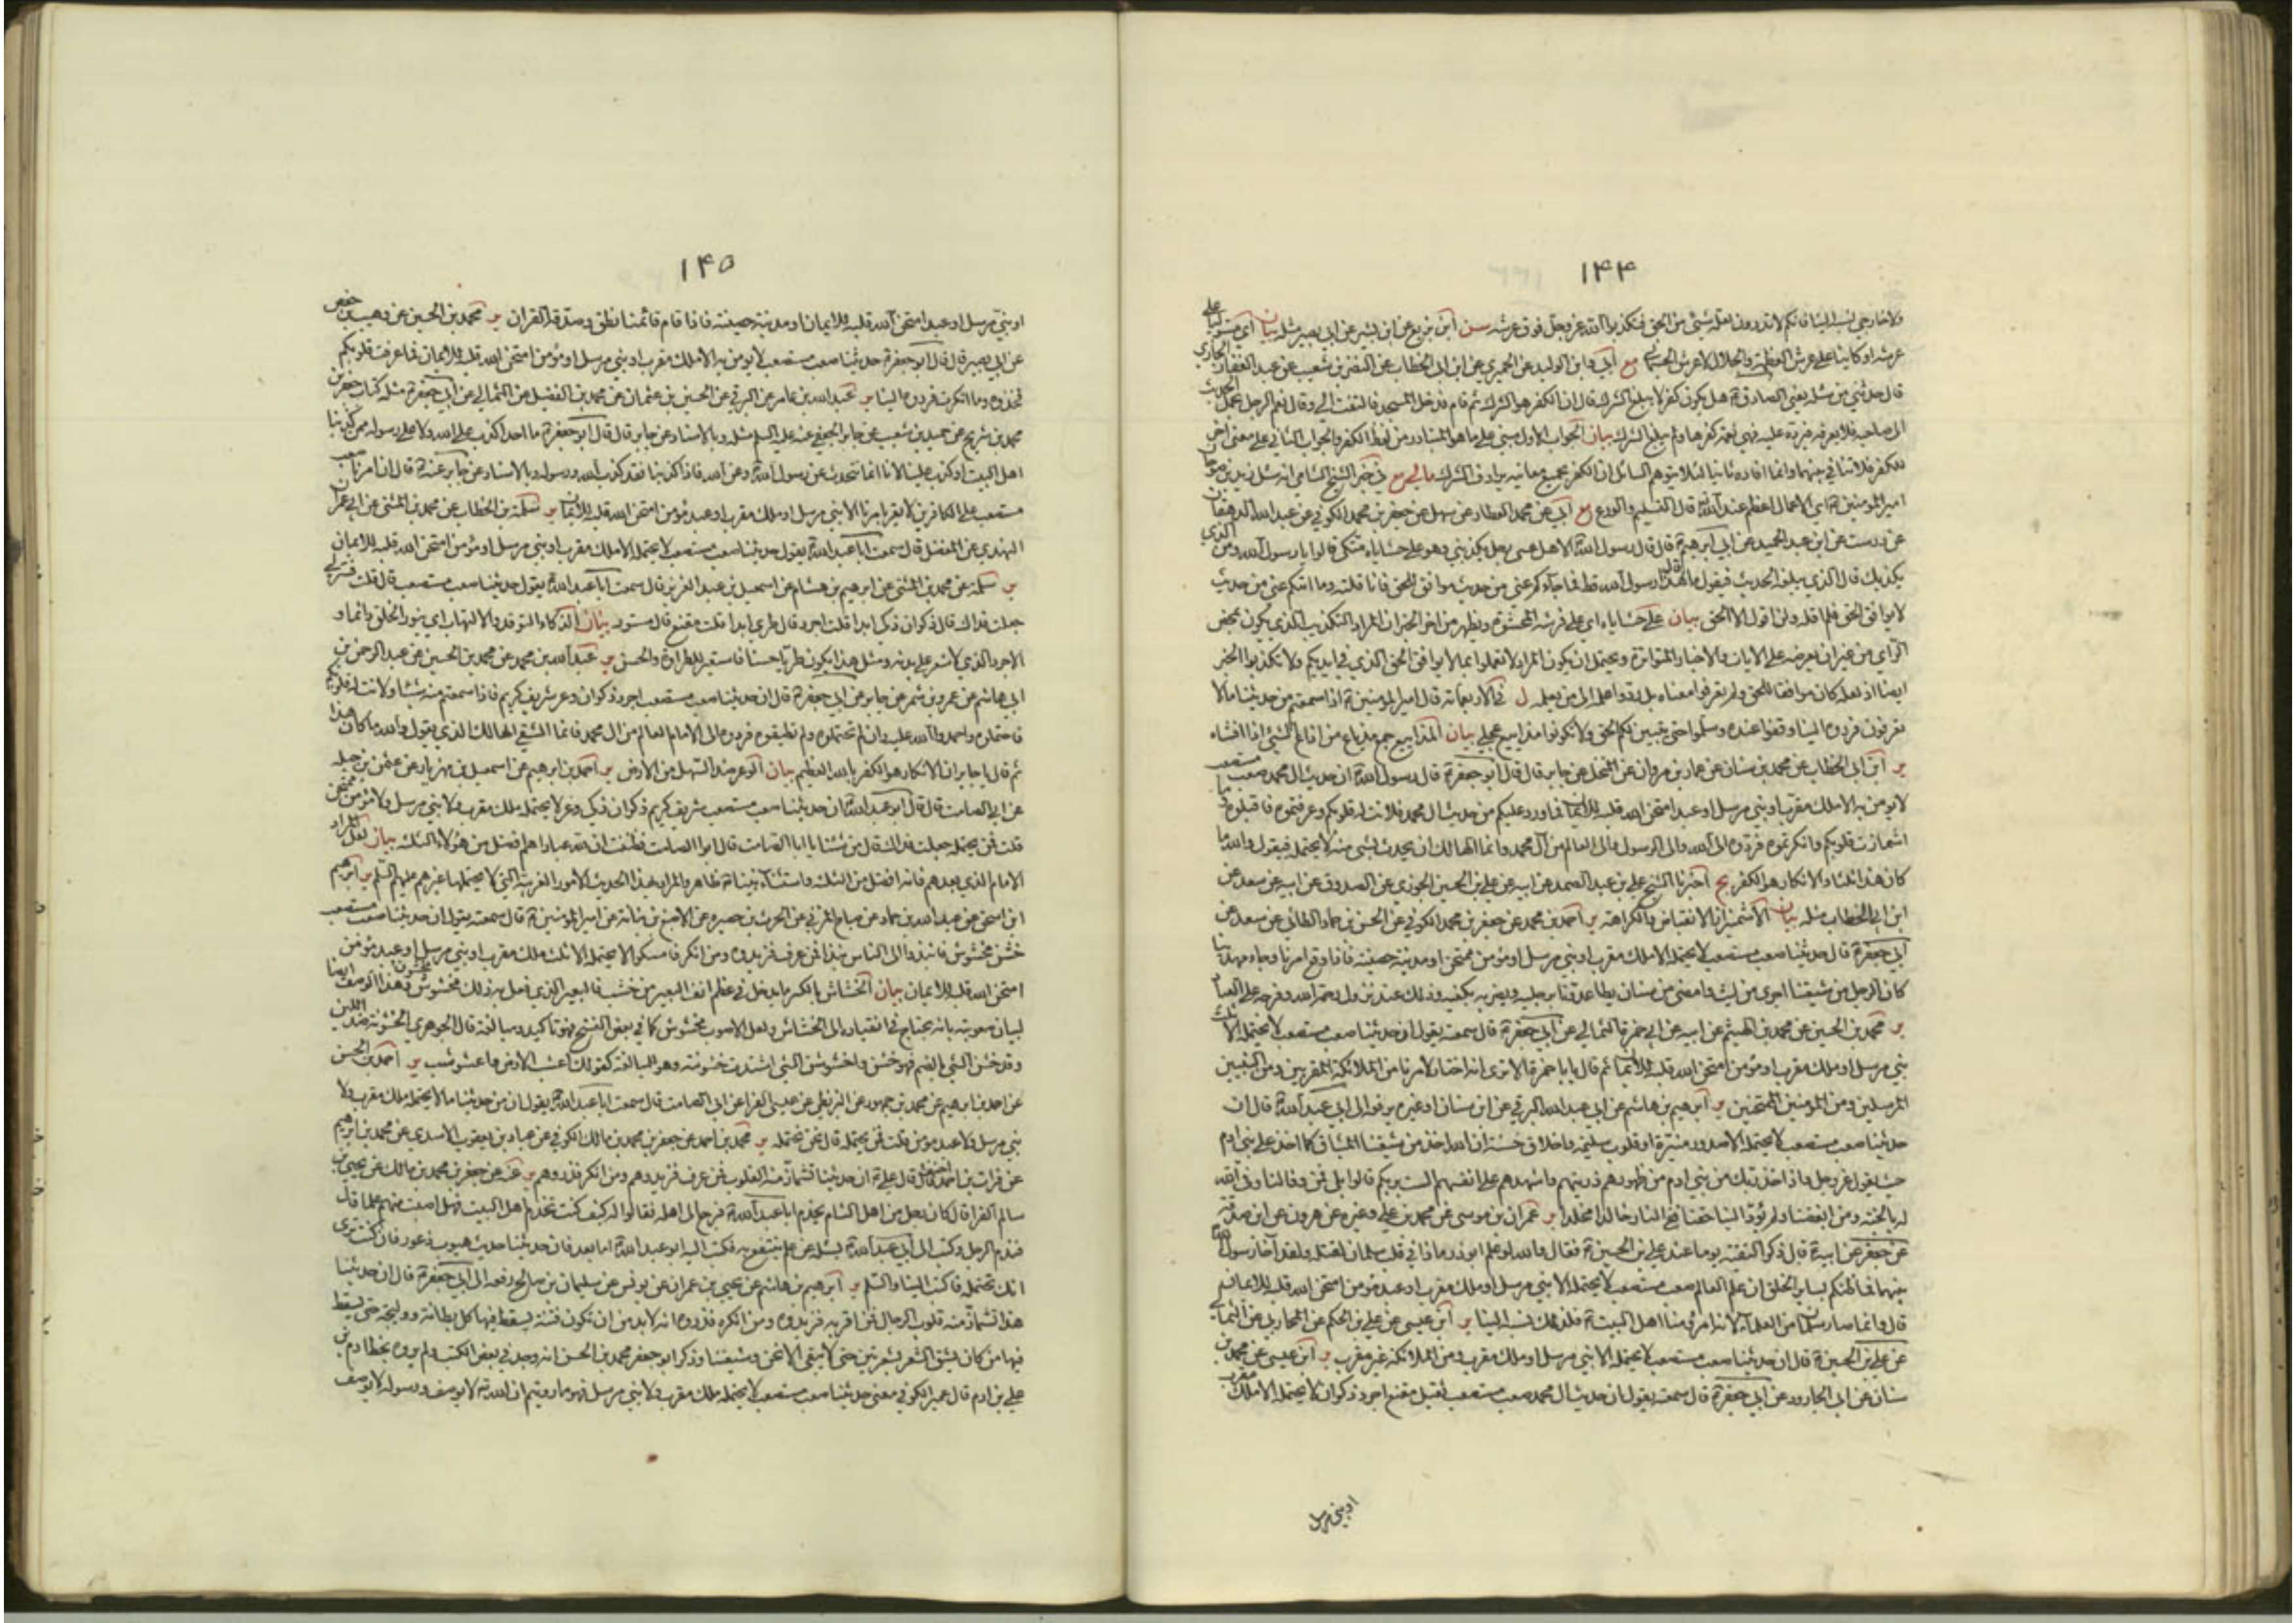 ۱۴۴
ولا خارجي نسبه الينا فانكم لا تدرون لعله شئ من الحق فتكذبوا الله عز وجل فوق عرشه سن ابن بزيع عن ابن بشير عن ابي بصير مثله بيان اي مستوليا على
عرشه او كاينا على عرش العظمة والجلال لا عرش الجسماني مع ابي وابن الوليد عن الحميري عن ابن ابي الخطاب عن النضر بن شعيب عن عبد الغفار الجازي
قال حدثني من سئله يعني الصادق ع هل يكون كفر لا يبلغ الشرك قال ان الكفر هو الشرك ثم قام فدخل المسجد فالتفت الي وقال نعم الرجل يحمل الحديث
الى صاحبه فلا يعرفه فيرده عليه فهي نعمة كفرها ولم يبلغ الشرك بيان الجواب الاول مبني على ما هو المتبادر من لفظ الكفر والجواب الثاني على معنى اخر
للكفر فلا تنافي بينهما وانما افاده ثانيا لئلا يتوهم السائل ان الكفر بجميع معانيه يرادف الشرك ما لي مع في خبر الشيخ الشامي انه سئل زيد بن صوحان
امير المؤمنين ع اي الاعمال اعظم عند الله قال التسليم والورع مع ابي عن محمد العطار عن سهل عن جعفر بن محمد الكوفي عن عبد الله الدهقان
عن درست عن ابن عبد الحميد عن ابي ابرهيم ع قال قال رسول الله الا هل عسى رجل يكذبني وهو على حشاياه متكئ قالوا يا رسول الله ومن الذي
يكذبك قال الذي يبلغه الحديث فيقول ما قال هذا رسول الله قط فما جاءكم عني من حديث موافق للحق فانا قلته وما اتيكم عني من حديث
لا يوافق الحق فلم اقله ولن اقول الا الحق بيان على حشاياه اي على فرشه المحشوة ويظهر من اخر الخبر ان المراد التكذيب الذي يكون بمحض
الراي من غير ان يعرضه على الايات والاخبار المتواترة ويحتمل ان يكون المراد لا تعملوا بما لا يوافق الحق الذي في ايديكم ولا تكذبوا الخبر
ايضا اذ لعله كان موافقا للحق ولم تعرفوا معناه بل ردوا علمه الى من يعلمه ل في الاربعماته قال امير المؤمنين ع اذا سمعتم من حديثنا ما لا
تعرفون فردوه الينا وقفوا عنده وسلموا حتى يتبين لكم الحق ولا تكونوا مذاييع عجلى بيان المذاييع جمع مذياع من اذاع الشئ اذا افشاه
ير ابن ابي الخطاب عن محمد بن سنان عن عمار بن مروان عن المنخل عن جابر قال قال ابو جعفر ع قال رسول الله ان حديث ال محمد صعب مستصعب
لا يومن به الا ملك مقرب او نبي مرسل او عبد امتحن الله قلبه للايمان فما ورد عليكم من حديث ال محمد فلانت له قلوبكم وعرفتموه فاقبلوه وما
اشمازت قلوبكم وانكرتموه فردوه الى الله والى الرسول والى العالم من آل محمد وانما الهالك ان يحدث بشئ منه لا يحتمله فيقول والله ما
كان هذا ثلثا والانكار هو الكفر يج اخبرنا الشيخ علي بن عبد الصمد عن ابيه عن علي بن الحسين الجوزي عن الصدوق عن ابيه عن سعد عن
ابن ابي الخطاب مثله بيان الاشميزاز الانقباض والكراهة ير احمد بن محمد عن جعفر بن محمد الكوفي عن الحسن بن حماد الطائي عن سعد عن
ابي جعفر ع قال حديثنا صعب مستصعب لا يحتمله الا ملك مقرب او نبي مرسل او مؤمن ممتحن او مدينة حصينة فاذا وقع امرنا وجاء مهدينا
كان الرجل من شيعتنا اجرى من ليث وامضى من سنان يطا عدونا برجليه ويضربه بكفيه وذلك عند نزول رحمة الله وفرجه على العباد
ير محمد بن الحسين عن محمد بن الهيثم عن ابيه عن ابي حمزة الثمالي عن ابي جعفر ع قال سمعته يقول ان حديثنا صعب مستصعب لا يحتمله الا ثلث
نبي مرسل او ملك مقرب او مؤمن امتحن الله قلبه للايمان ثم قال يا با حمزة الا ترى انه اختار لامرنا من الملائكة المقربين ومن النبيين
المرسلين ومن المؤمنين الممتحنين ير ابرهيم بن هاشم عن ابي عبد الله البرقي عن ابن سنان او غيره يرفعه الى ابي عبد الله ع قال ان
حديثنا صعب مستصعب لا يحتمله الا صدور منيرة او قلوب سليمة واخلاق حسنة ان الله اخذ من شيعتنا الميثاق كما اخذ على بني ادم
حيث يقول عز وجل واذ اخذ ربك من بني ادم من ظهورهم ذريتهم واشهدهم على انفسهم الست بربكم قالوا بلى فمن وفى لنا وفى الله
له بالجنة ومن ابغضنا ولم يؤد الينا حقنا ففي النار خالدا مخلدا ير عمران بن موسى عن محمد بن علي وغيره عن هرون عن ابن صدقة
عن جعفر عن ابيه ع قال ذكر التقية يوما عند علي بن الحسين ع فقال والله لو علم ابو ذر ما في قلب سلمان لقتله ولقد اخا رسول الله
بينهما فما ظنكم بسائر الخلق ان علم العالم صعب مستصعب لا يحتمله الا نبي مرسل او ملك مقرب او عبد مؤمن امتحن الله قلبه للايمان
قال وانما صار سلمان من العلماء لانه امرؤ منا اهل البيت ع فلذلك نسبه الينا ير ابن عيسى عن علي بن الحكم عن المحاربي عن الثمالي
عن علي بن الحسين ع قال ان حديثنا صعب مستصعب لا يحتمله الا نبي مرسل او ملك مقرب ومن الملائكة غير مقرب ير ابن عيسى عن محمد بن
سنان عن ابي الجارود عن ابي جعفر ع قال سمعته يقول ان حديث ال محمد صعب مستصعب ثقيل مقنع اجرد ذكوان لا يحتمله الا ملك مقرب
او نبي مرسل
۱۴۵
او نبي مرسل او عبد امتحن الله قلبه للايمان او مدينة حصينة فاذا قام قائمنا نطق وصدقه القران ير محمد بن الحسين عن وهيب بن حفص
عن ابي بصير قال قال ابو جعفر ع حديثنا صعب مستصعب لا يومن به الا ملك مقرب او نبي مرسل او مؤمن امتحن الله قلبه للايمان فما عرفت قلوبكم
فخذوه وما انكرت فردوه الينا ير عبد الله بن عامر عن البرقي عن الحسين بن عثمان عن محمد بن الفضيل عن الثمالي عن ابي جعفر ع مثله كتاب جعفر بن
محمد بن شريح عن حميد بن شعيب عن جابر الجعفي عنه عليه السلم مثله وبالاسناد عن جابر قال قال ابو جعفر ع ما احد اكذب على الله ولا على رسوله ممن كذبنا
اهل البيت او كذب علينا لانا انما نتحدث عن رسول الله وعن الله فاذا كذبنا فقد كذب الله ورسوله وبالاسناد عن جابر عنه ع قال ان امرنا صعب
مستصعب على الكافرين لا يقر بامرنا الا نبي مرسل او ملك مقرب او عبد مؤمن امتحن الله قلبه للايمان ير سلمة بن الخطاب عن محمد بن المثنى عن ابي عمران
النهدي عن المفضل قال سمعت ابا عبد الله يقول حديثنا صعب مستصعب لا يحتمله الا ملك مقرب او نبي مرسل او مؤمن امتحن الله قلبه للايمان
ير سلمة عن محمد بن المثنى عن ابرهيم بن هشام عن اسمعيل بن عبد العزيز قال سمعت ابا عبد الله يقول حديثنا صعب مستصعب قال قلت فسر لي
جعلت فداك قال ذكوان ذكي ابدا قلت اجرد قال طري ابدا قلت مقنع قال مستور بيان الذكاء التوقد والالتهاب اي ينور الخلق دائما و
الاجرد الذي لا شعر على بدنه ومثل هذا يكون طريا حسنا فاستعير للطراوة والحسن ير عبد الله بن محمد عن محمد بن الحسين عن عبد الرحمن بن
ابي هاشم عن عمرو بن شمر عن جابر عن ابي جعفر ع قال ان حديثنا صعب مستصعب اجرد ذكوان وعر شريف كريم فاذا سمعتم منه شيئا ولانت له قلوبكم
فاحتملوه واحمدوا الله عليه وان لم تحتملوه ولم تطيقوه فردوه الى الامام العالم من ال محمد فانما الشقي الهالك الذي يقول والله ما كان هذا
ثم قال يا جابر ان الانكار هو الكفر بالله العظيم بيان الوعر ضد السهل من الارض ير احمد بن ابرهيم عن اسمعيل بن مهزيار عن عثمن بن جبلة
عن ابي الصامت قال قال ابو عبد الله ان حديثنا صعب مستصعب شريف كريم ذكوان ذكي وعر لا يحتمله ملك مقرب ولا نبي مرسل ولا مؤمن ممتحن
قلت فمن يحتمله جعلت فداك قال من شئنا يا ابا الصامت قال ابو الصامت فظننت ان لله عبادا هم افضل من هؤلاء الثلثة بيان لعل المراد
الامام الذي بعدهم فانه افضل من الثلثة واستثناء نبينا ص ظاهر والمراد بهذا الحديث الامور الغريبة التي لا يحتملها غيرهم عليهم السلم ير ابرهيم
ابن اسحق عن عبد الله بن حماد عن صباح المزني عن الحرث بن حصيرة عن الاصبغ بن نباتة عن امير المؤمنين ع قال سمعته يقول ان حديثنا صعب مستصعب
خشن مخشوش فانبذوا الى الناس نبذا فمن عرف فزيدوه ومن انكر فامسكوا لا يحتمله الا ثلث ملك مقرب او نبي مرسل او عبد مؤمن
امتحن الله قلبه للايمان بيان الخشاش بالكسر ما يدخل في عظم انف البعير من خشب فالبعير الذي فعل به ذلك مخشوش وهذا الوصف ايضا
لبيان صعوبته بانه يحتاج في انقياده الى الخشاش ولعل الاصوب مخشوشن كما في بعض النسخ فهو تاكيد ومبالغة قال الجوهري الخشونة ضد اللين
وقد خشن الشئ بالضم فهو خشن واخشوشن الشئ اشتدت خشونته وهو للمبالغة كقولك اعشب الارض واعشوشب ير احمد بن الحسن
عن احمد بن ابرهيم عن محمد بن جمهور عن البزنطي عن عيسى الفرا عن ابي الصامت قال سمعت ابا عبد الله يقول ان من حديثنا ما لا يحتمله ملك مقرب ولا
نبي مرسل ولا عبد مؤمن قلت فمن يحتمله قال نحن نحتمله ير محمد بن احمد عن جعفر بن محمد بن مالك الكوفي عن عباد بن يعقوب الاسدي عن محمد بن ابرهيم
عن فرات بن احمد قال قال علي ع ان حديثنا تشمئز منه القلوب فمن عرف فزيدوهم ومن انكر فذروهم ير عنه عن جعفر بن محمد بن مالك عن يحيى بن
سالم الفرا قال كان رجل من اهل الشام يخدم ابا عبد الله ع فرجع الى اهله فقالوا له كيف كنت تخدم اهل البيت فهل اصبت منهم علما قال
فندم الرجل وكتب الى ابي عبد الله ع يسئله عن علم ينتفع به فكتب اليه ابو عبد الله ع اما بعد فان حديثنا حديث هيوب ذعور فان كنت ترى
انك تحتمله فاكتب الينا والسلم ير ابرهيم بن هاشم عن يحيى بن عمران عن يونس عن سليمان بن صالح رفعه الى ابي جعفر ع قال ان حديثنا
هذا تشمئز منه قلوب الرجال فمن اقر به فزيدوه ومن انكره فذروه انه لا بد من ان تكون فتنة يسقط فيها كل بطانة ووليجة حتى يسقط
فيها من كان يشق الشعر بشعرتين حتى لا يبقى الا نحن وشيعتنا وذكر ابو جعفر محمد بن الحسن انه وجد في بعض الكتب ولم يروه بخط ادم بن
علي بن ادم قال عمير الكوفي في معنى حديثنا صعب مستصعب لا يحتمله ملك مقرب ولا نبي مرسل فهو ما رويتم ان الله ت لا يوصف ورسوله لا يوصف